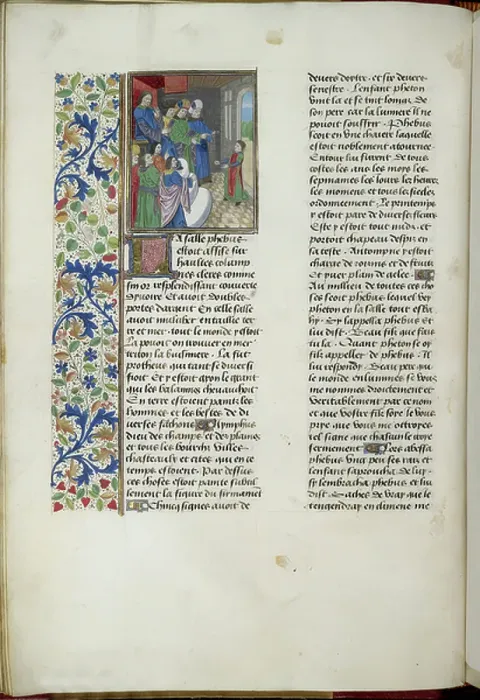 A salle phebus
estoit assise sur
haultes colump
nes cleres comme
fin or resplendissant couverte
dyvoire Et avoit doubles
portes dargent En celle salle
avoit mulciber entaille ter
re et mer tout le monde y estoit
La pouoit on trouver en mer
triton la buisiniere La fut
protheus qui tant se diversi
fioit Et y estoit egeon le geant
qui les balaines chevauchoit
En terre estoient paintz les
hommes et les bestes de di
verses facons Lymphus
dieu des champs et des plaines
et tous les bourcs villes
chasteaulx et citez qui en ce
temps estoient Par dessus
ces choses estoit painte subtil
lement la figure du firmament
Cincq signes avoit de
devers dextre et six devers
senestre Lenfant pheton
vint la et se tint loing de
son pere car la lumiere il ne
pouoit souffrir Phebus
seoit en une chaiere laquelle
estoit noblement atournee
Entour lui furent de tous
costes les ans les moys les
sepmaines les iours les heures
les momens et tous les siecles
ordonneement Le printemps
y estoit pare de diverses fleurs
Este y estoit tout nudz et
portoit chapeau despis en
sa teste Antompne y estoit
charge de roisins et de fruis
Et yver plain de gelee
Au millieu de toutes ces cho
ses seoit phebus lequel vey
pheton en la salle tout esba
hy Sy lappella phebus et
lui dist Beau filz que fais
tu la Quant pheton se oy
filz appeller de phebus Il
lui respondy Beau pere qui
le monde enlumines se vous
me nommes droictement
Veritablement par ce nom
et que vostre filz soye le vous
prye que vous me octroyes
tel signe que chascun le croye
fermement Lors abessa
phebus ung peu ses rais et
lenfant saproucha de luy
sy lembracha phebus et lui
dist Saches de vray que ie
tengendray en dimene me